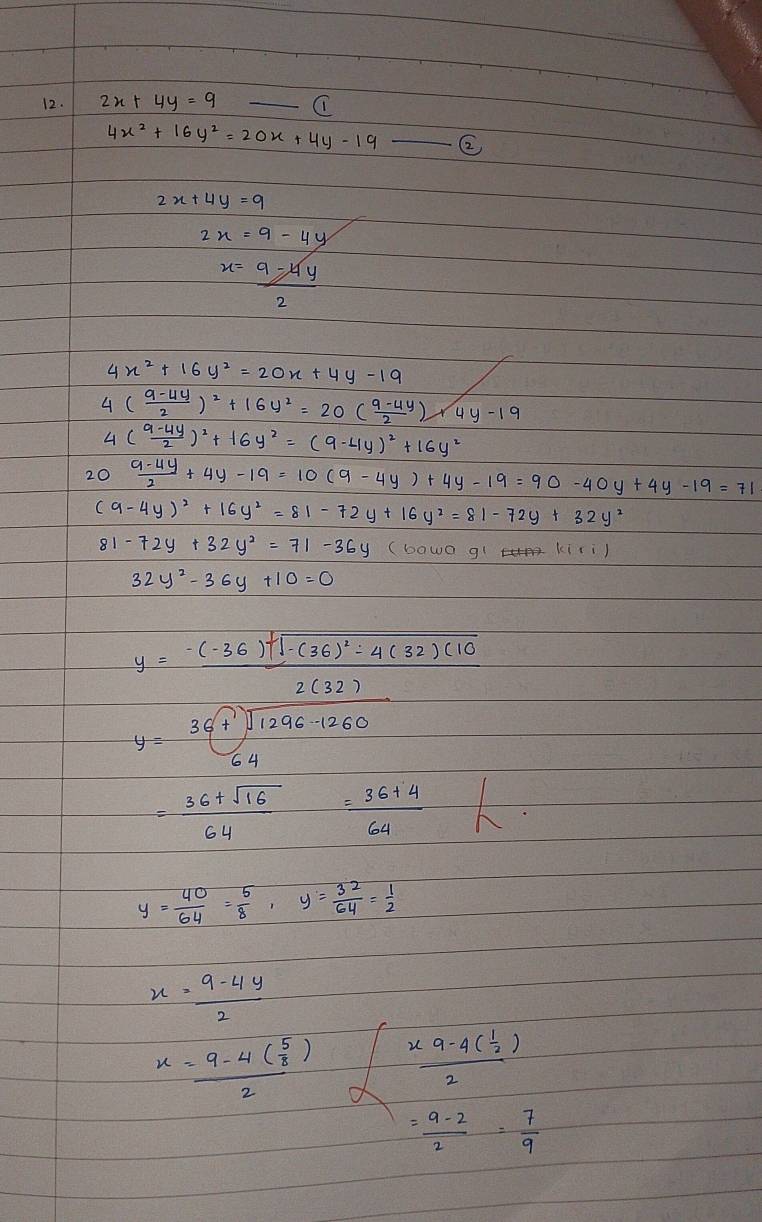 12. 2x + 4y = 9 —— ①
4x² + 16y² = 20x + 4y - 19 —— ②
2x + 4y = 9
2x = 9 - 4y
x = (9 - 4y)/2
4x² + 16y² = 20x + 4y - 19
4 ((9-4y)/2)² + 16y² = 20 ((9-4y)/2) + 4y - 19
4 ((9-4y)/2)² + 16y² = (9-4y)² + 16y²
20 (9-4y)/2 + 4y - 19 = 10 (9 - 4y) + 4y - 19 = 90 - 40y + 4y - 19 = 71
(9-4y)² + 16y² = 81 - 72y + 16y² = 81 - 72y + 32y²
81 - 72y + 32y² = 71 - 36y (bawa gi kiri)
32y² - 36y + 10 = 0
y = (-(-36) + √-(36)² - 4(32)(10)/2(32)
y = (36 + √1296 - 1260)/64
= (36 + √16)/64 = (36 + 4)/64
y = 40/64 = 5/8 , y = 32/64 = 1/2
x = (9 - 4y)/2
x = (9 - 4(5/8))/2 x (9 - 4(1/2))/2
= (9 - 2)/2 = 7/9